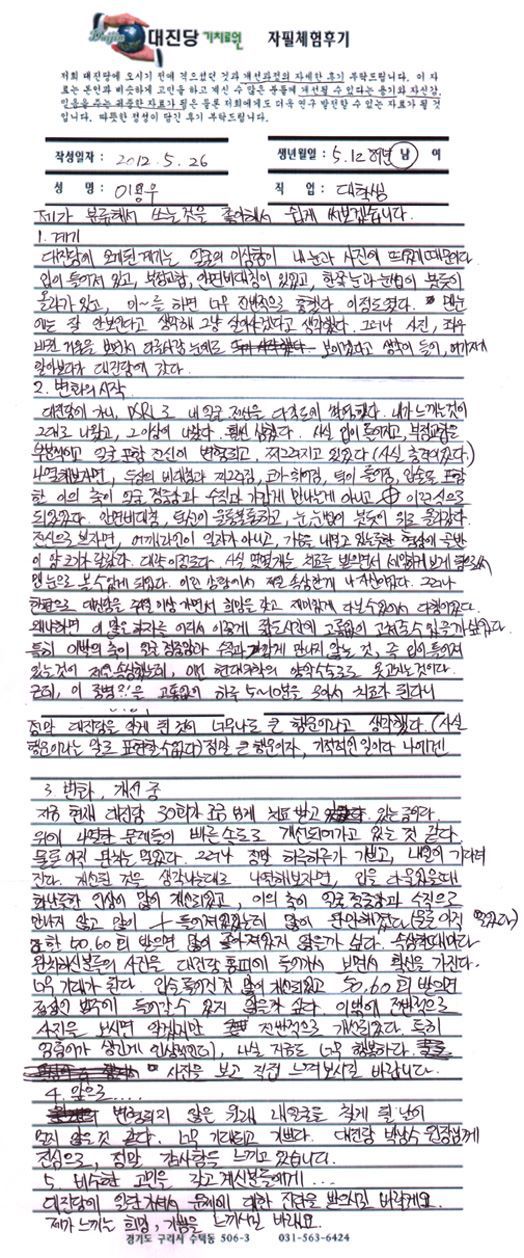 Daejin 대진당 기치료원 자필체험후기
저희 대진당에 오시기 전에 겪으셨던 것과 개선과정의 자세한 후기 부탁드립니다. 이 자
료는 본인과 비슷하게 고민을 하고 계신 수 많은 분들께 개선될 수 있다는 용기와 자신감,
믿음을 주는 귀중한 자료가 됨은 물론 저희에게도 더욱 연구 발전할 수 있는 자료가 될 것
입니다. 따뜻한 정성이 담긴 후기 부탁드립니다.
작성일자 : 2012. 5. 26 생년월일 : 5.12 남 여
성 명 : 이용우 직 업 : 대학생
제가 분류해서 쓰는것을 좋아해서 쉽게 써보겠습니다.
1. 계기
대진당에 오게된 계기는 얼굴의 이상함이 내 눈과 사진에
입이 틀어져 있고, 부정교합, 안면비대칭이 있었고, 한쪽 눈과 눈썹이 붓듯이
올라가 있고, 이~를 하면 너무 전반적으로 흉했다. 이정도였다. 맨눈
에는 잘 안보인다고 생각해 그냥 살아가겠다고 생각했다. 그러나 사진, 좌우
바뀐 거울을 보면서 다른사람 눈에도 보이겠다고 생각이 들어, 여기저기
알아보다가 대진당에 갔다.
2. 변화의 시작
대진당에 가니, DSRL로 내 얼굴 전신을 다각도에 찍어줬다. 내가 느끼는것이
그대로 나왔고, 그 이상이 나왔다. 훨씬 심했다. 사실 입이 틀어지고, 부정교합을
얼굴 포함 전신이 변형되고, 찌그러지고 있었다 (사실 충격이었다.)
나열해보자면, 두상의 비대칭과 찌그러짐, 코가 휘어짐, 턱이 틀어짐, 입술도 포함
한 이의 축이 얼굴 정중앙과 수직으로 가깝게 만나는게 아니고, 이런식으로
되있었다. 안면비대칭, 턱선이 울퉁불퉁하고, 눈, 눈썹이 붓듯이 위로 올라갔다.
전신으로 보자면, 어깨라인이 일자가 아니고, 가슴을 내밀고 있는듯한 체형에 골반
이 양 크기가 달랐다. 대략 이정도다. 사실 몇몇개는 치료를 받으면서 세밀하게 보게 됨으로써
맨눈으로 볼 수 있게 되었다. 이런 상황에서 제일 속상한게 나 자신이었다. 그러나
한편으로 대진당을 주 2회 이상 가면서 희망을 갖고 재미있게 다닐수있어서 다행이었다.
왜냐하면 이 많은 하자를 어디서 이렇게 짧은시간에 고통없이 고쳐줄수 있을까 싶었다.
특히 이빨의 축이 얼굴 정중앙과 수직으로 가깝게 만나지 않는 것, 즉 입이 틀어져
있는것이 제일 속상했는데, 이건 현대의학의 양악수술로도 못고치는것이다.
근데, 이 을 고통없이 하루 5~10분을 으어서 치료가 된다니
정말 대진당을 알게 된 것이 너무나도 큰 행운이라고 생각했다. (사실
행운이라는 말로 표현할수없다) 정말 큰 행운이자, 기적적인 일이다 나에겐
3. 변화, 개선 중
지금 현재 대진당 30회가 조금 넘게 치료 받고 있는 중이다.
위에 나열한 문제들이 빠른속도로 개선되어가고 있는 것 같다.
물론 아직 완치는 멀었다. 그러나 정말 하루하루가 기쁘고, 내일이 기다려
진다. 개선된 것은 생각나는대로 나열해보자면, 입을 다물었을때
화난듯한 인상이 많이 개선되었고, 이의 축이 얼굴 정중앙과 수직으로
만나지 않고 많이 틀어져있었는데 많이 완화해졌다 (물론 아직 멀었다)
또한 50, 60회 받으면 많이 좋아져있지 않을까 싶다. 속상할때마다
완치하신분들의 사진을 대진당 홈피에 들어가서 보면서 확신을 가진다.
너무 기대가 된다. 입술 틀어진것 많이 개선되었고 50, 60회 받으면
정상인 범주에 들어갈수 있지 않을까 싶다. 이밖에 전반적으로
사진을 보시면 알겠지만 전반적으로 개선되었다. 특히
인상변한데, 사실 지금도 너무 행복하다.
사진을 보고 직접 느껴보시길 바랍니다.
4. 앞으로....
변형되지 않은 원래 내얼굴을 찾게 될 날이
멀지 않은 것 같다. 너무 기대되고 기쁘다. 대진당 박상수 원장님께
진심으로, 정말 감사함을 느끼고 있습니다.
5. 비슷한 고민을 갖고 계신분들에게...
대진당에 일단 가셔서 문제에 대한 진단을 받으시길 바랄게요.
제가 느끼는 희망, 기쁨을 느끼시길 바래요.
경기도 구리시 수택동 506-3 031-563-6424